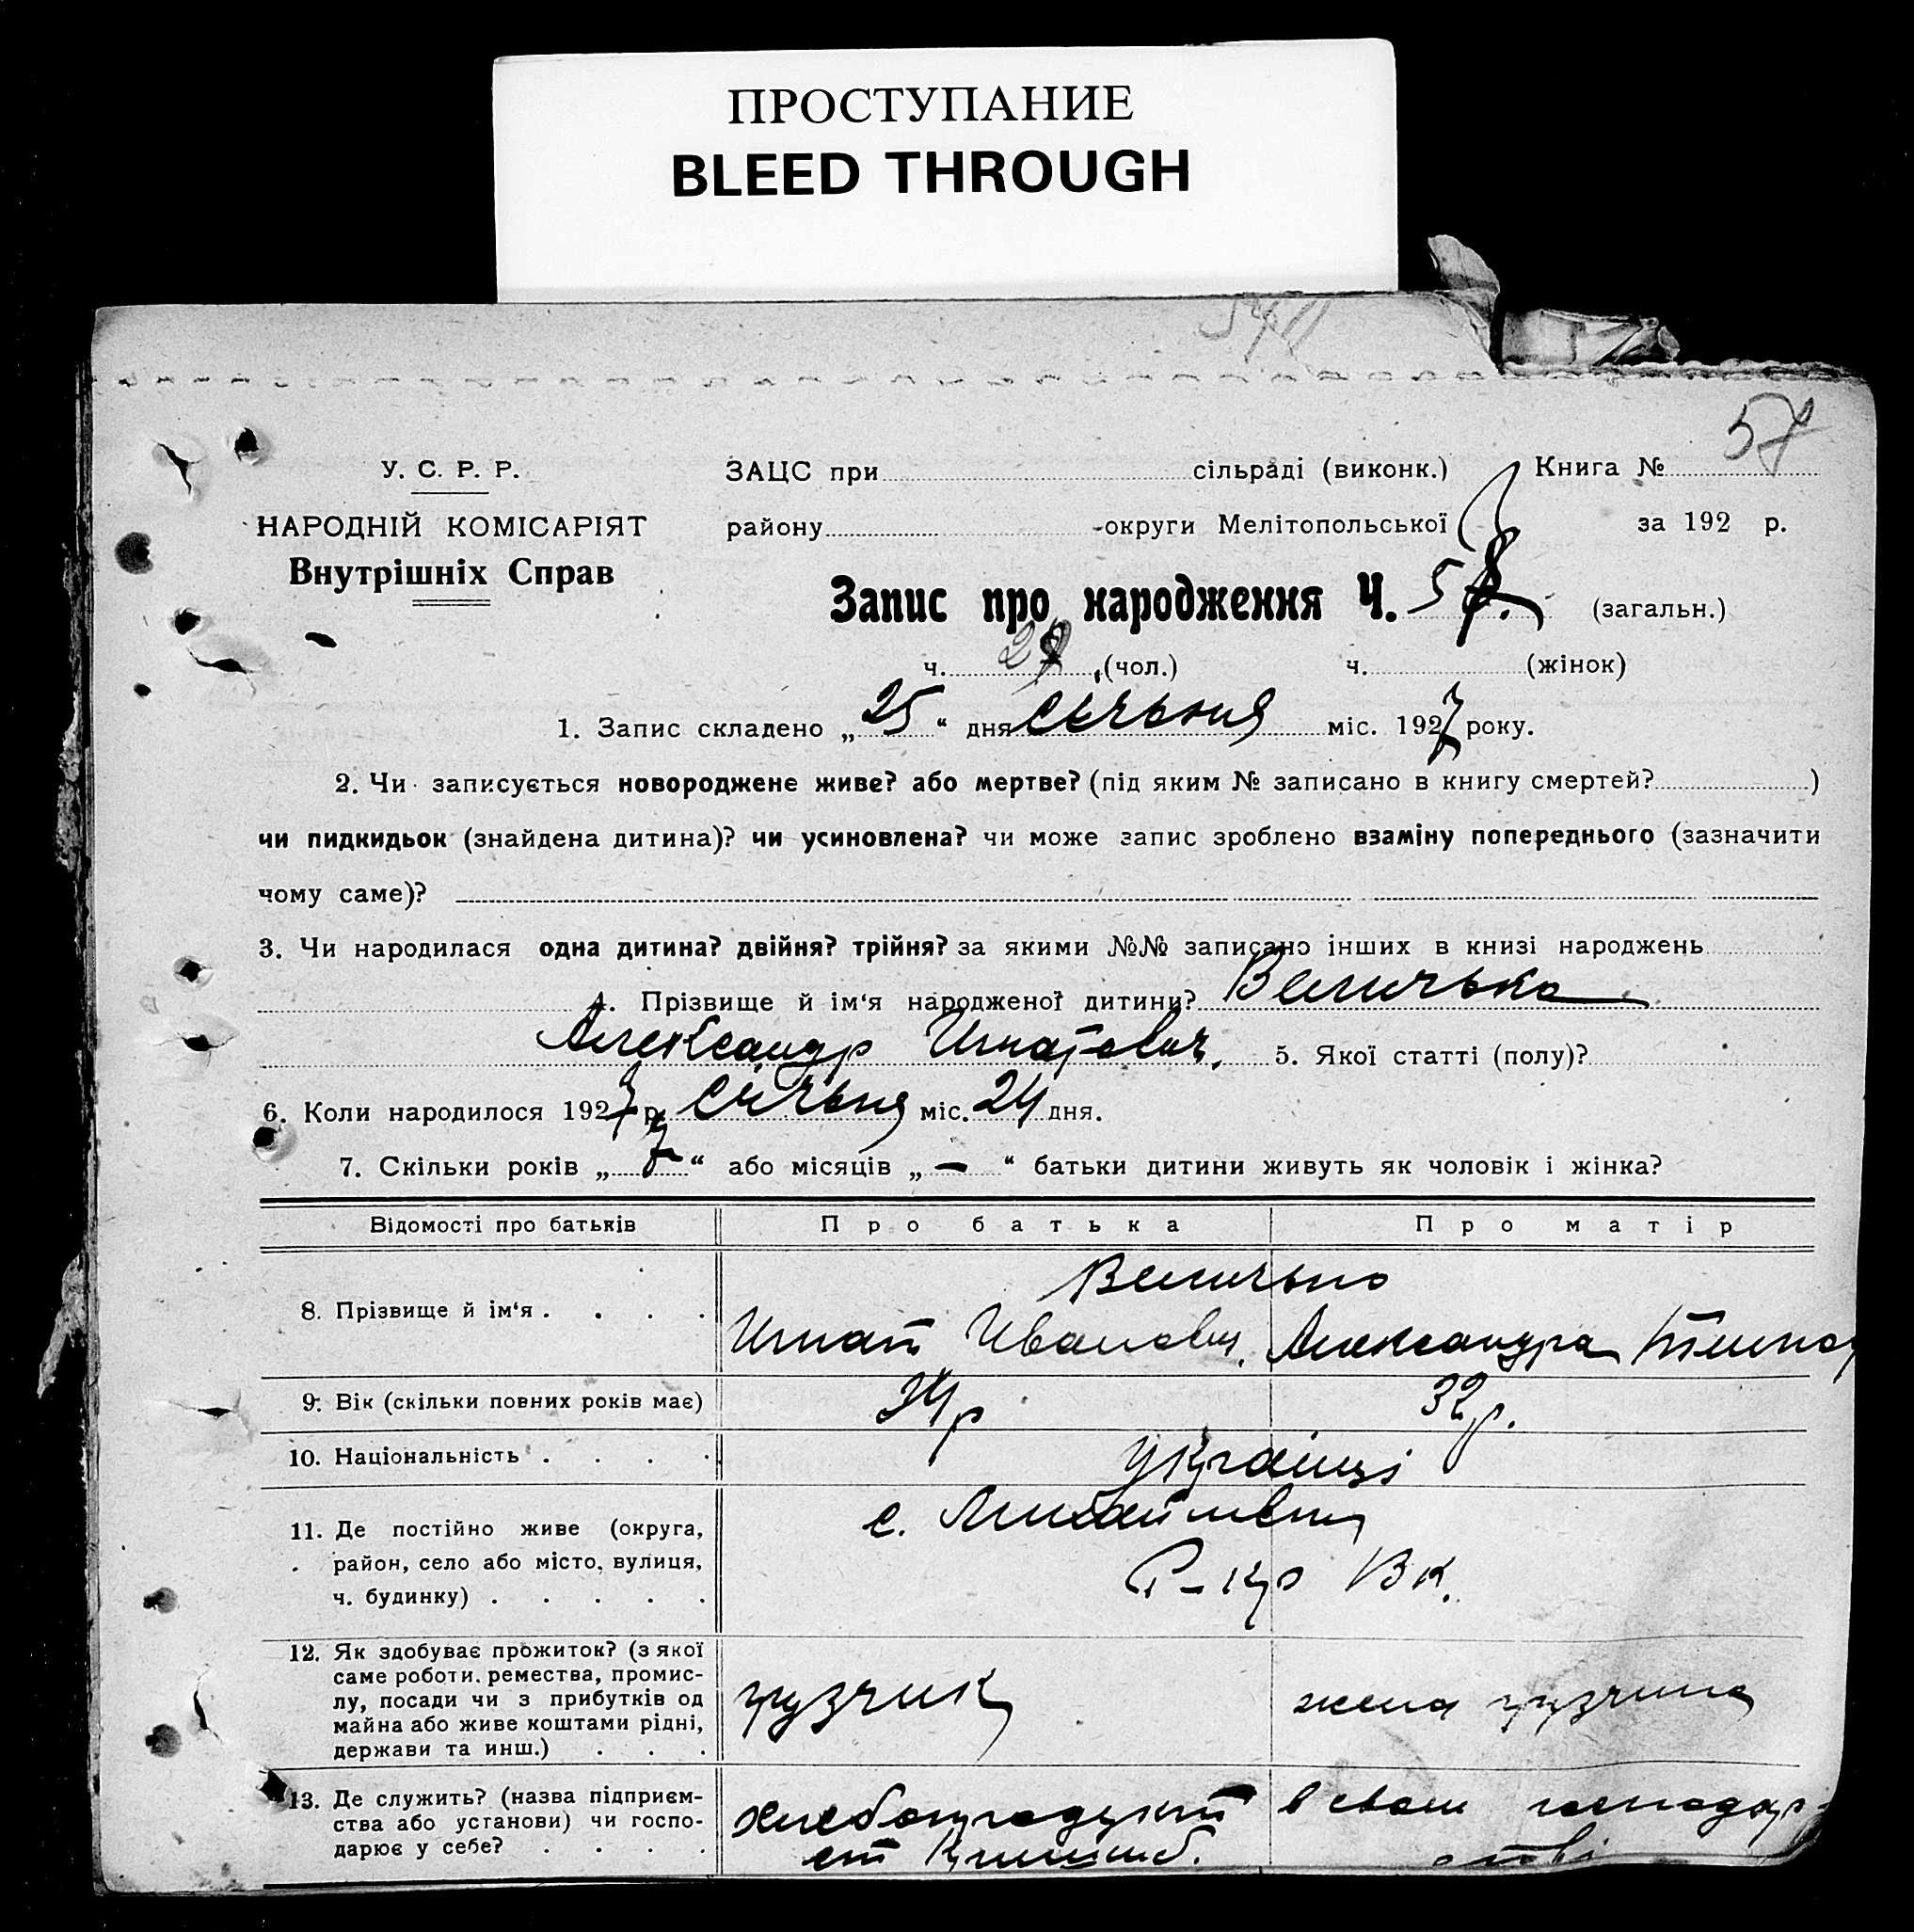 ПРОСТУПАНИЕ
BLEED THROUGH
57
У. С. Р. Р.
НАРОДНІЙ КОМІСАРІЯТ
Внутрішніх Справ
ЗАЦС при сільраді (виконк.) Книга №
району -округи Мелітопольської за 192 р.
Запис про народження Ч. 57. (загальн.)
ч. (чол.) ч. (жінок)
1. Запис складено „25“ дня січьня міс. 1927 року.
2. Чи записується новороджене живе? або мертве? (під яким № записано в книгу смертей? )
чи пидкидьок (знайдена дитина)? чи усиновлена? чи може запис зроблено взаміну попереднього (зазначити
чому саме)?
3. Чи народилася одна дитина? двійня? трійня? за якими №№ записано інших в книзі народжень
4. Прізвище й ім‘я народженої дитини? Величько
Александр Игнатович. 5. Якої статті (полу)?
6. Коли народилося 1927 р. січьня міс. 24 дня.
7. Скільки років „7“ або місяців „—“ батьки дитини живуть як чоловік і жінка?
Відомості про батьків Про батька Про матір
Величько
8. Прізвище й ім‘я . . . . Игнат Иванович. Александра
9. Вік (скільки повних років має) 34 р 32 р.
10. Національність . . . . українці
11. Де постійно живе (округа, с. Михайлівка
район, село або місто, вулиця,
ч. будинку) . . . . . ВК.
12. Як здобуває прожиток? (з якої
саме роботи. ремества, промис-
лу, посади чи з прибутків од грузчик жена грузчика
майна або живе коштами рідні,
держави та инш.) . . .
13. Де служить? (назва підприєм- хлебопродукт в своем господар-
ства або установи) чи госпо- ст стві
дарює у себе? . . . .